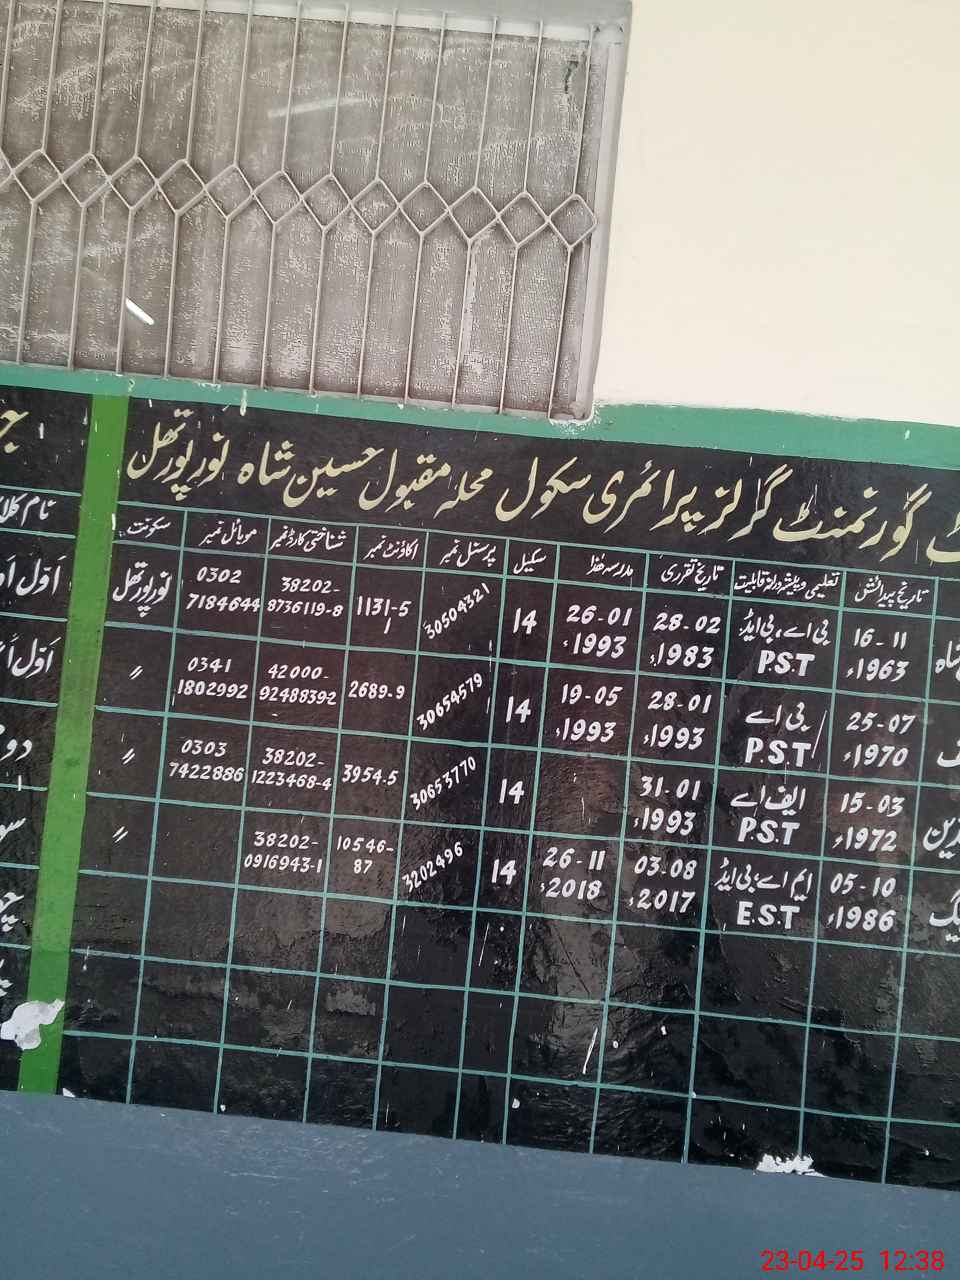 گورنمنٹ گرلز پرائمری سکول محلہ مقبول حسین شاہ نورپورتھل
تاریخ پیدائش تعلیمی وپیشہ ورانہ قابلیت تاریخ تقرری مدرسہ ھذا سکیل پرسنل نمبر اکاؤنٹ نمبر شناختی کارڈ نمبر موبائل نمبر سکونت
16-11 1963ء بی اے، بی ایڈ P.S.T 28-02 1983ء 26-01 1993ء 14 30504321 1131-5 1 38202-8736119-8 0302 7184644 نورپورتھل
25-07 1970ء بی اے P.S.T 28-01 1993ء 19-05 1993ء 14 30654579 2689-9 42000-92488392 0341 1802992 〃
15-03 1972ء ایف اے P.S.T 31-01 1993ء 14 30653770 3954.5 38202-1223468-4 0303 7422886 〃
05-10 1986ء ایم اے، بی ایڈ E.S.T 03-08 2017ء 26-11 2018ء 14 3202496 10546-87 38202-0916943-1 〃
نام کلا
اوّل
اوّل
23-04-25 12:38